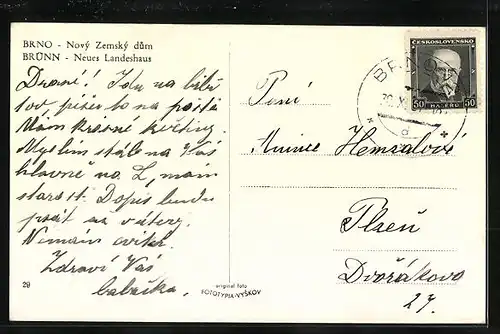 BRNO - Nový Zemský dům
BRÜNN - Neues Landeshaus
Drazí! Jdu na
píši to na poště
Mám krásné květiny.
Myslím stále na Vás
hlavně na L, mám
starost. Dopis budu
psát až v úterý.
Nemám
Zdraví Vás
babička.
29
original foto
FOTOTYPIA-VYŠKOV
ČESKOSLOVENSKO
50 HALÉŘŮ 50
BRNO
Paní
Hemzalové
Plzeň
Dvořákova
27.